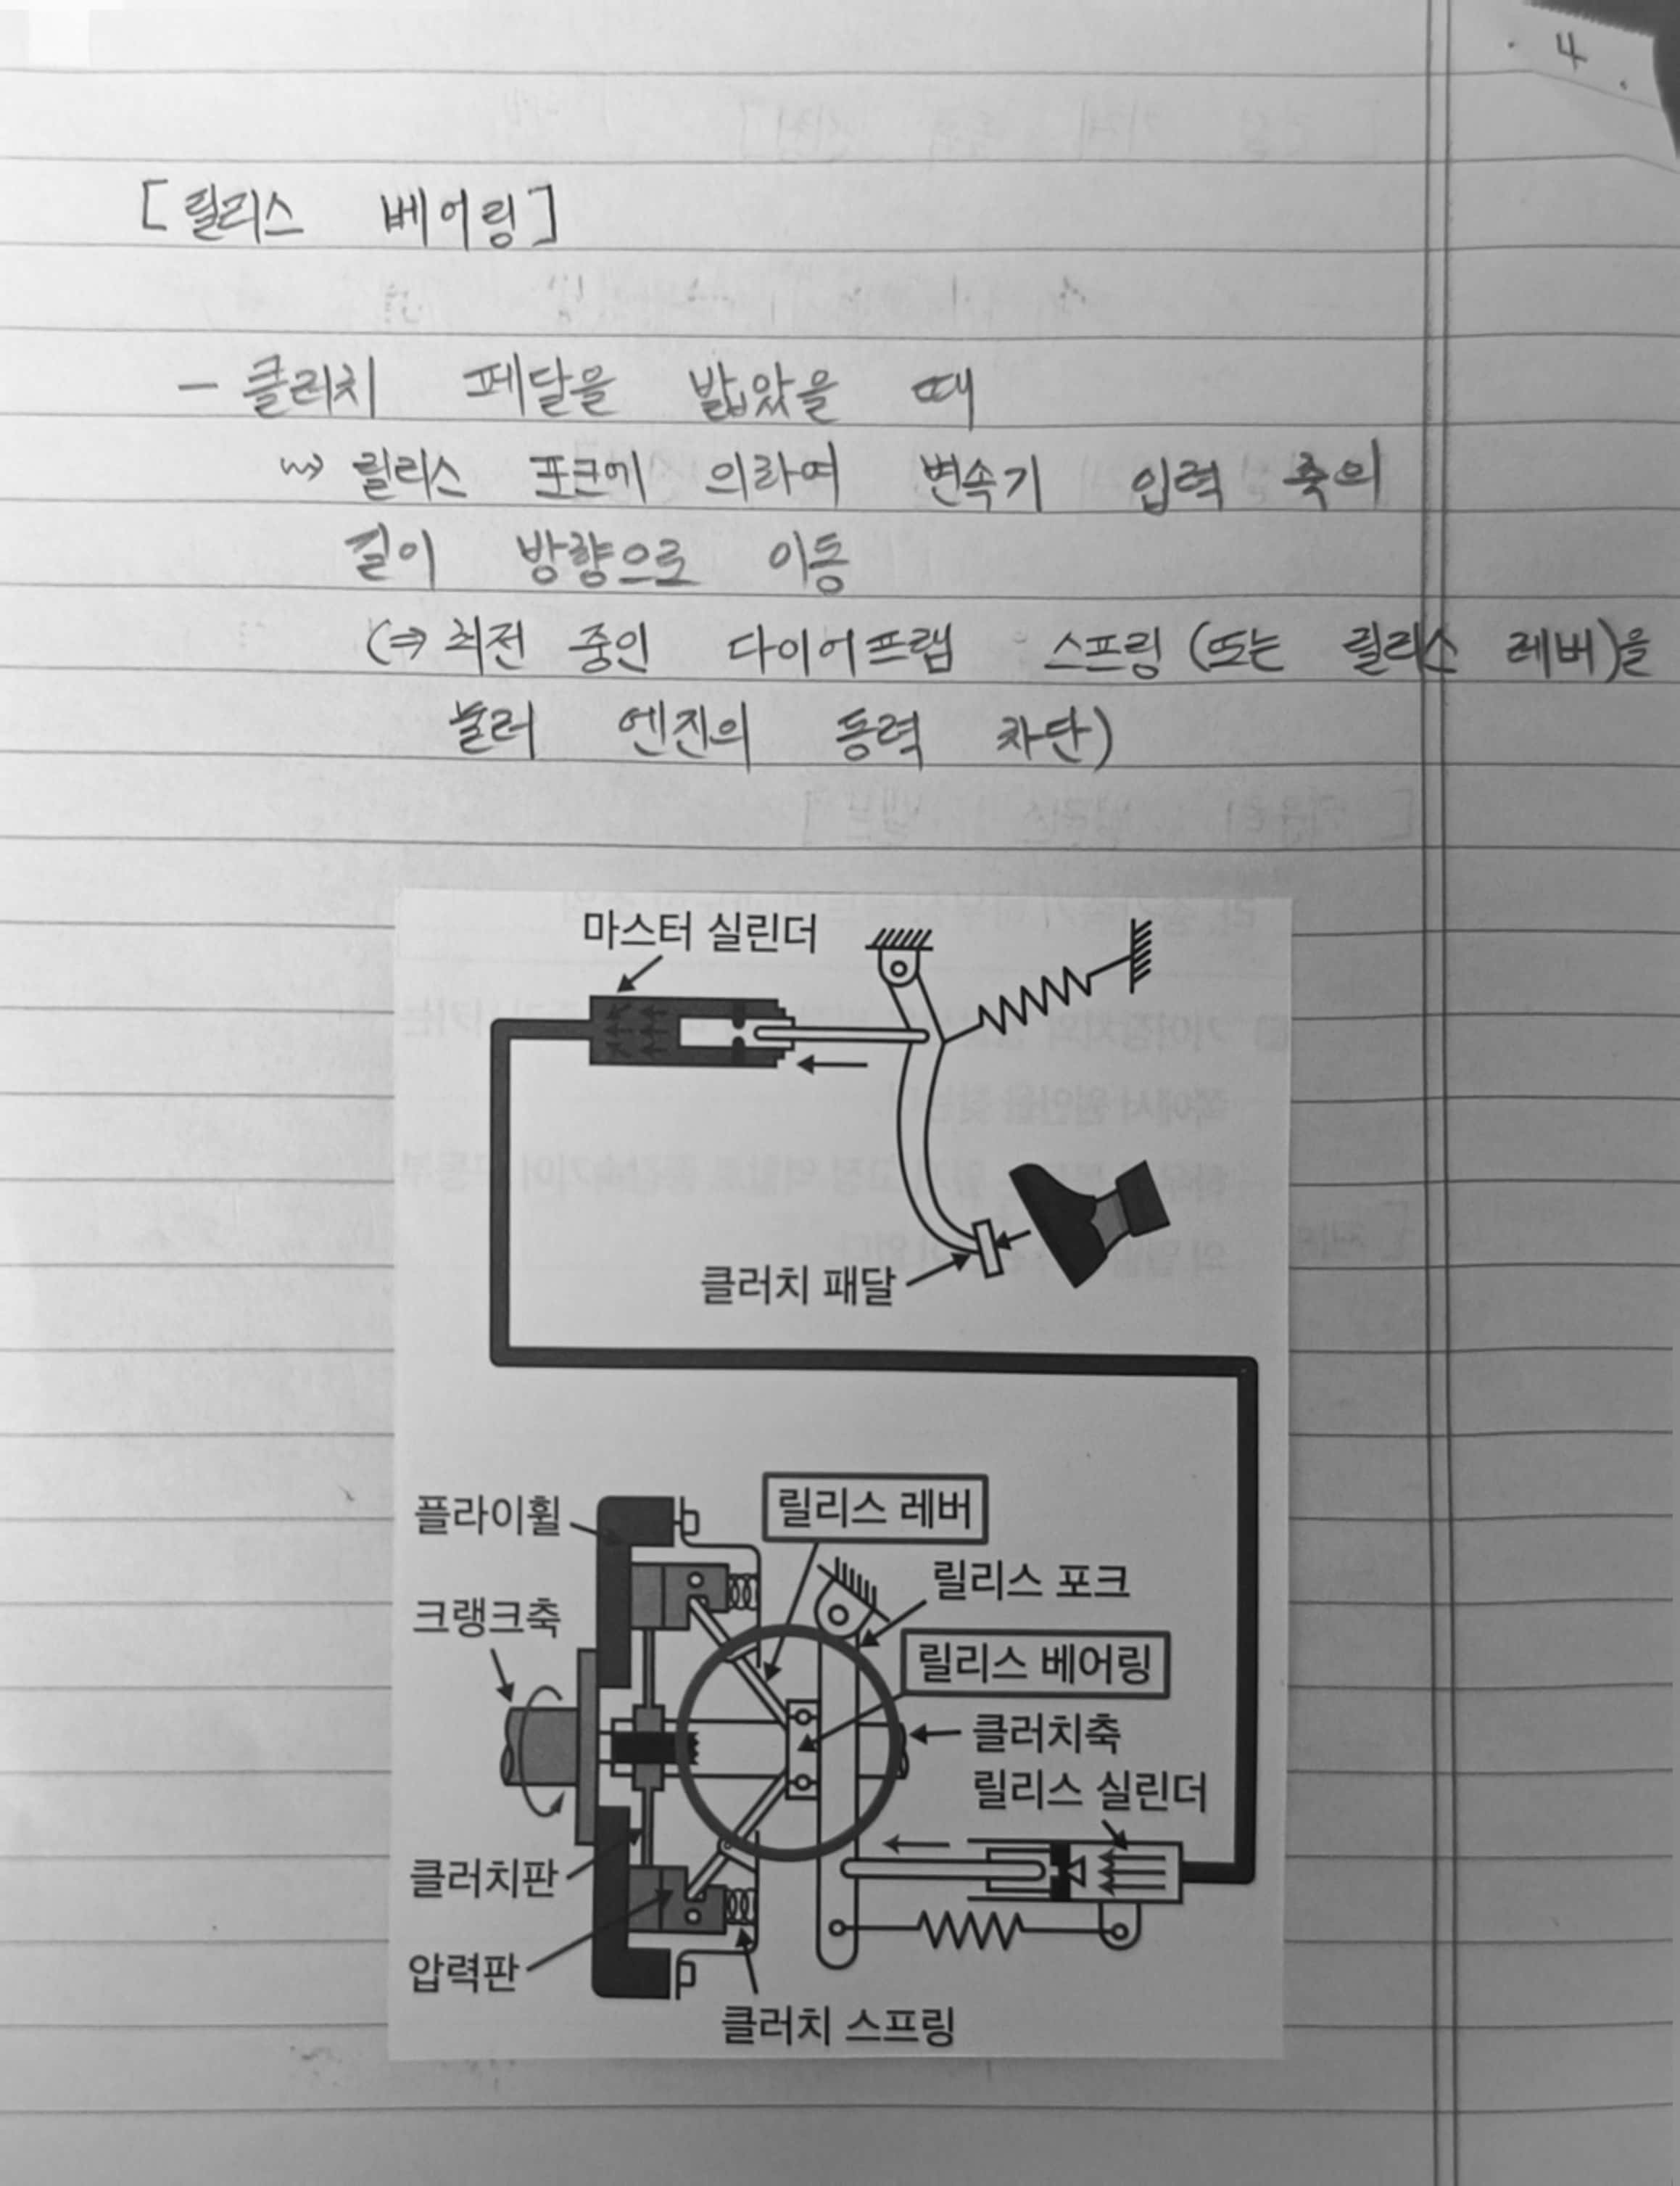 4
[릴리스 베어링]
- 클러치 페달을 밟았을 때
⇝ 릴리스 포크에 의하여 변속기 입력 축의
길이 방향으로 이동
(⇒ 회전 중인 다이어프램 스프링 (또는 릴리스 레버)을
눌러 엔진의 동력 차단)
마스터 실린더
클러치 패달
플라이휠
릴리스 레버
릴리스 포크
크랭크축
릴리스 베어링
클러치축
릴리스 실린더
클러치판
압력판
클러치 스프링